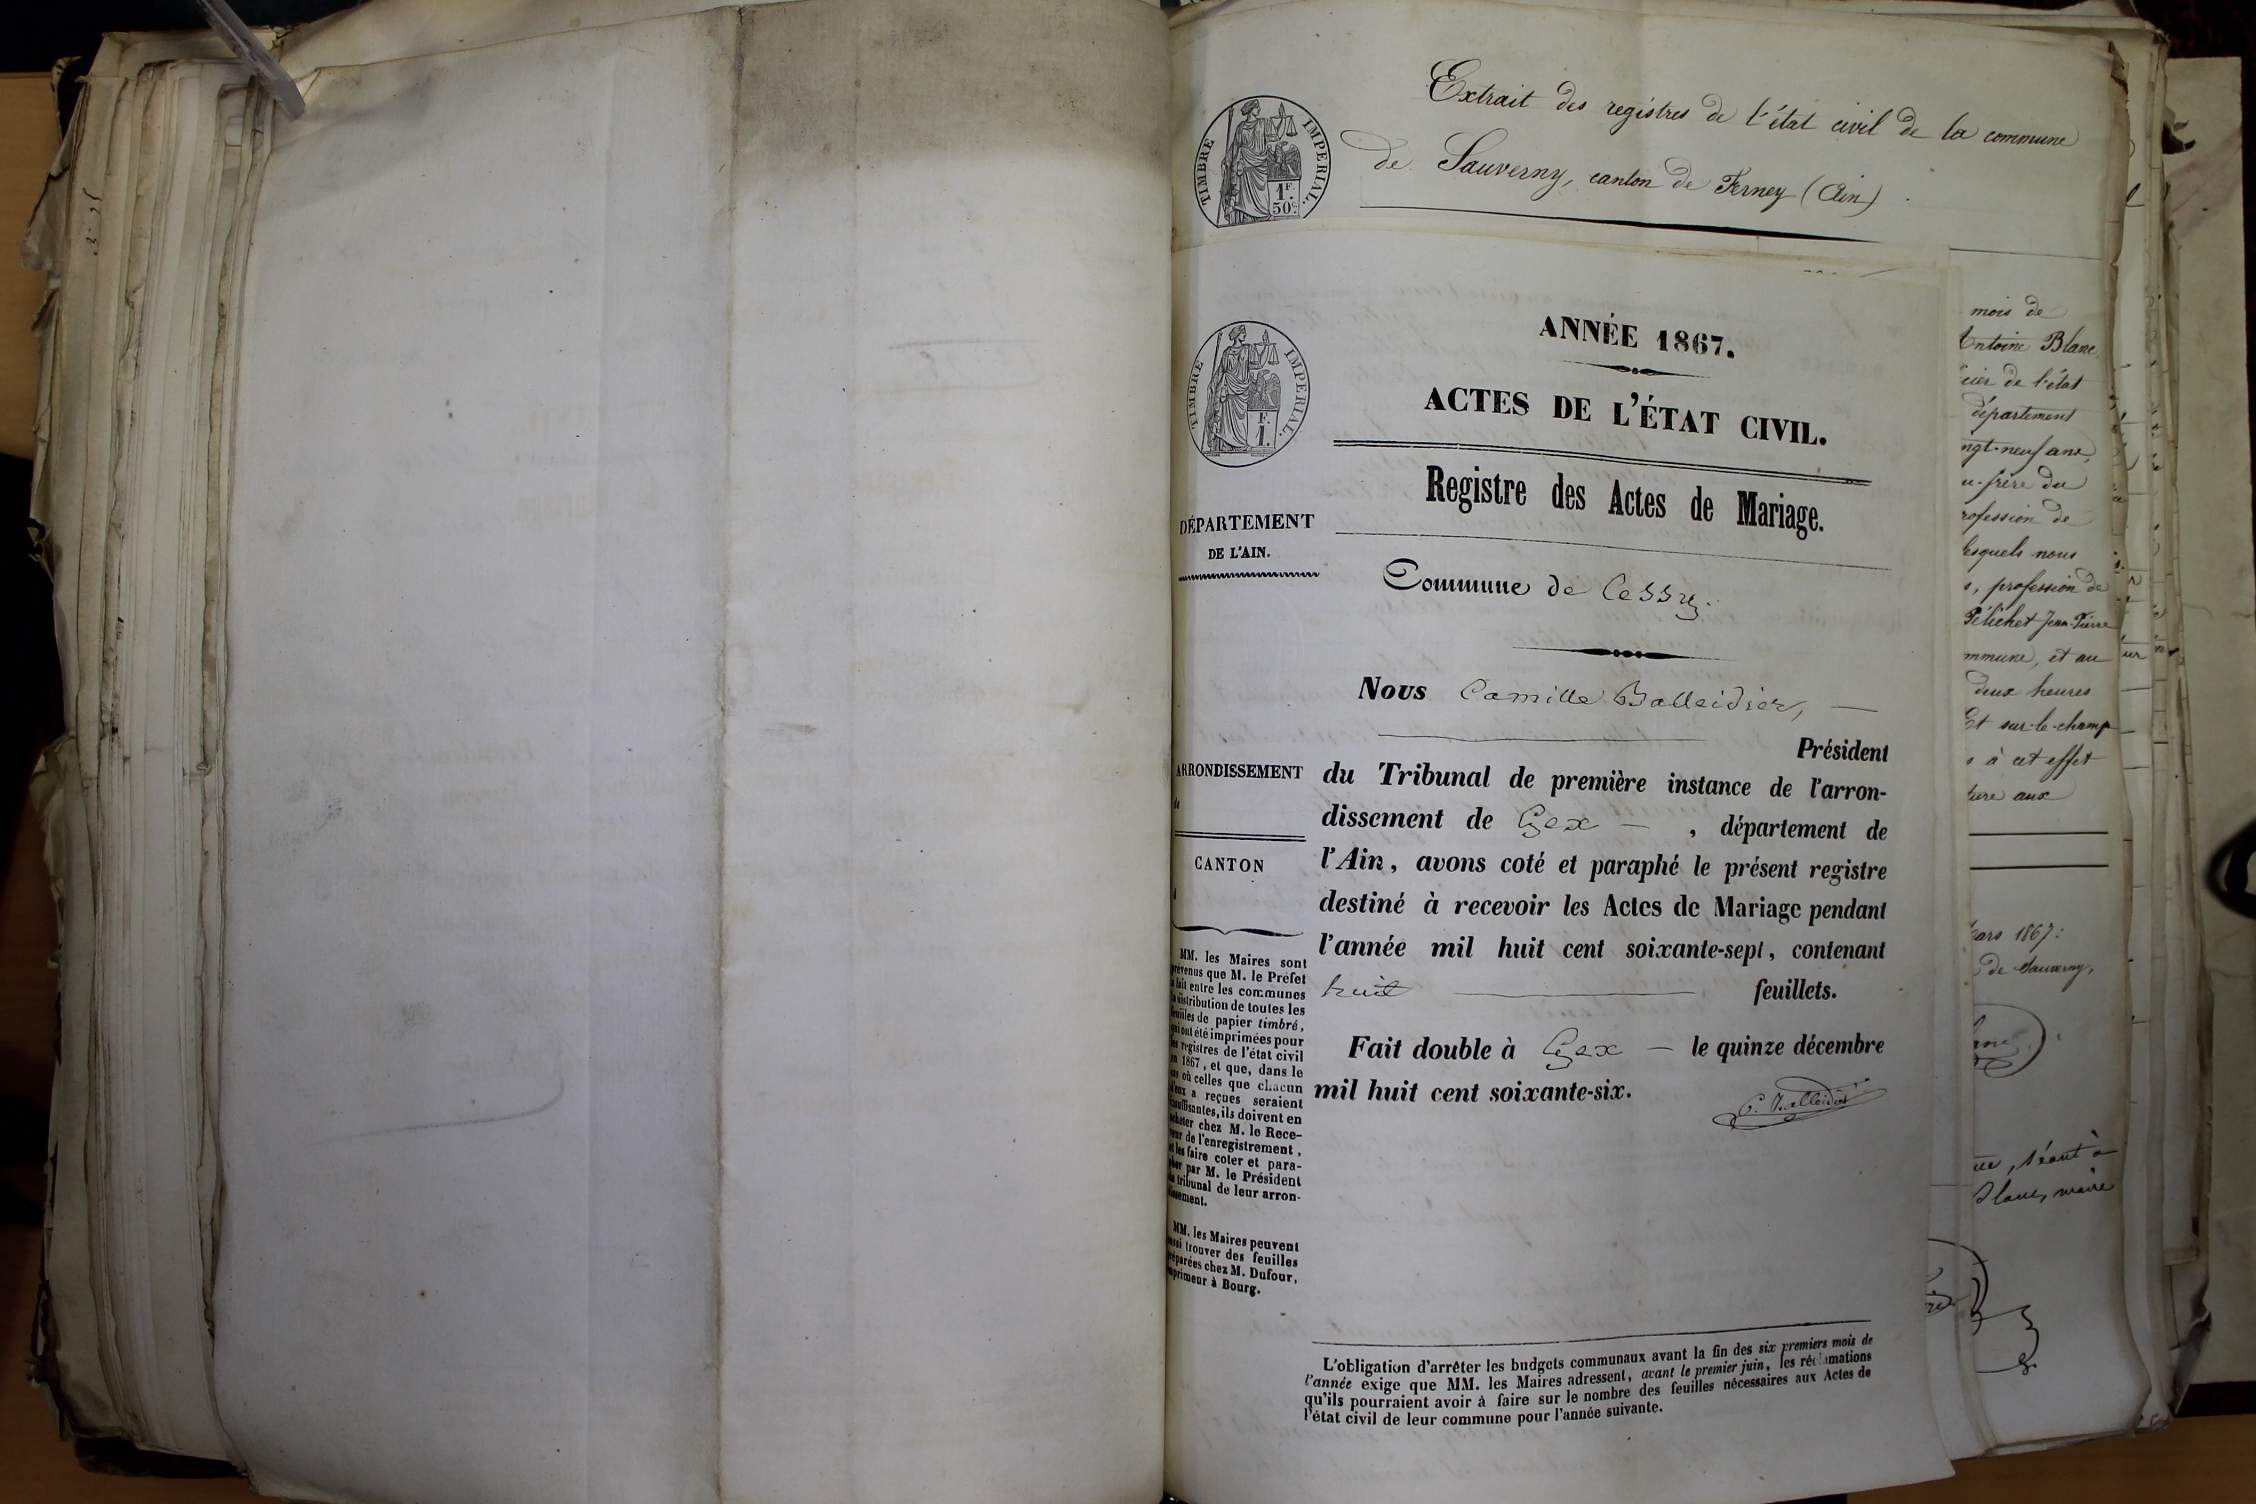 Extrait des registres de l'état civil de la commune
de Sauverny, canton de Ferney (Ain)
TIMBRE IMPERIAL.
1F.
50c.
TIMBRE IMPERIAL.
F.
1.
ANNÉE 1867.
ACTES DE L'ÉTAT CIVIL.
Registre des Actes de Mariage.
DÉPARTEMENT
DE L'AIN.
Commune de Cessy.
Nous Camille Balleidier,
Président
ARRONDISSEMENT
de
CANTON
d
du Tribunal de première instance de l'arron-
dissement de Gex , département de
l'Ain, avons coté et paraphé le présent registre
destiné à recevoir les Actes de Mariage pendant
l'année mil huit cent soixante-sept, contenant
huit feuillets.
Fait double à Gex le quinze décembre
mil huit cent soixante-six.
C. Balleidier
MM. les Maires sont
prévenus que M. le Préfet
a fait entre les communes
la distribution de toutes les
feuilles de papier timbré,
qui ont été imprimées pour
les registres de l'état civil
en 1867, et que, dans le
cas où celles que chacun
d'eux a reçues seraient
insuffisantes, ils doivent en
acheter chez M. le Rece-
veur de l'enregistrement,
et les faire coter et para-
pher par M. le Président
du tribunal de leur arron-
dissement.
MM. les Maires peuvent
aussi trouver des feuilles
préparées chez M. Dufour,
imprimeur à Bourg.
L'obligation d'arrêter les budgets communaux avant la fin des six premiers mois de
l'année exige que MM. les Maires adressent, avant le premier juin, les réclamations
qu'ils pourraient avoir à faire sur le nombre des feuilles nécessaires aux Actes de
l'état civil de leur commune pour l'année suivante.
mois de
Antoine Blanc,
cier de l'état
département
ngt-neuf ans,
u-frère du
rofession de
lesquels nous
s, profession de
Pélichet Jean-Pierre
mmune, et au
deux heures
Et sur-le-champ
s à cet effet
ture aux
ars 1867:
de Sauverny,
ue, séant à
Blanc, maire